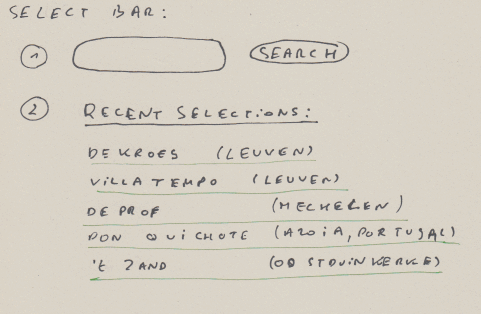 SELECT BAR:
1 SEARCH
2 RECENT SELECTIONS:
DE KROES (LEUVEN)
VILLA TEMPO (LEUVEN)
DE PROF (MECHELEN)
DON QUICHOTE (AZOIA, PORTUGAL)
'T ZAND (OOSTDUINKERKE)